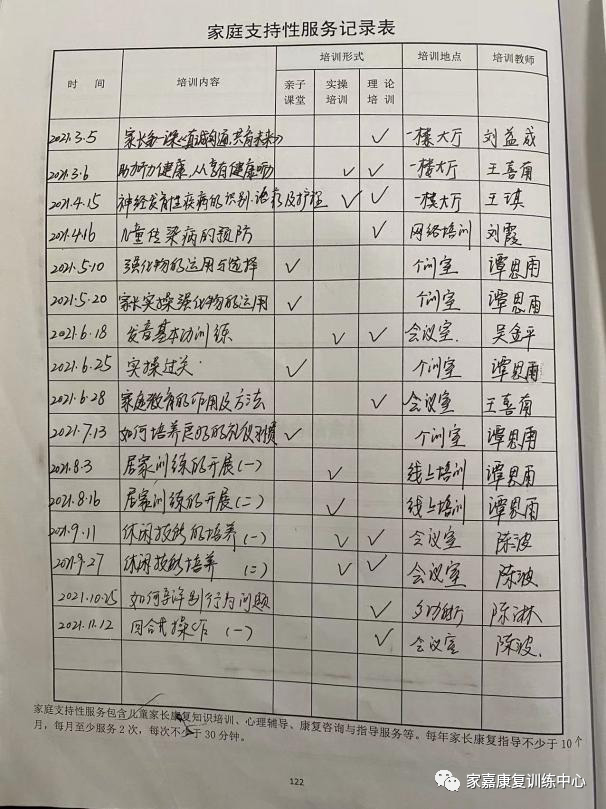 家庭支持性服务记录表
时 间 培训内容 培训形式 培训地点 培训教师
亲子课堂 实操培训 理论培训
2021.3.5 家长第一课《真诚沟通,共育未来》 ✓ 一楼大厅 刘益成
2021.3.6 助力听力健康,从爱耳健康听力 ✓ ✓ 一楼大厅 王喜菊
2021.4.15 神经发育性疾病的识别、治疗及护理 ✓ ✓ 一楼大厅 王琪
2021.4.16 儿童传染病的预防 ✓ 网络培训 刘霞
2021.5.10 强化物的运用与选择 ✓ 个训室 谭思雨
2021.5.20 家长实操强化物的运用 ✓ 个训室 谭思雨
2021.6.18 发音基本功训练 ✓ ✓ 会议室. 吴金平
2021.6.25 实操过关. ✓ 个训室 谭思雨
2021.6.28 家庭教育的作用及方法 ✓ 会议室 王喜菊
2021.7.13 如何培养良好的礼仪习惯 ✓ 个训室 谭思雨
2021.8.3 居家训练的开展(一) ✓ 线上培训 谭思雨
2021.8.16 居家训练的开展(二) ✓ 线上培训 谭思雨
2021.9.11 休闲技能的培养(一) ✓ ✓ 会议室 陈波
2021.9.27 休闲技能培养 (二) ✓ ✓ 会议室 陈波
2021.10.25 如何 行为问题 ✓ 多功能厅 陈琳
2021.11.12 回合式操作 (一) ✓ 会议室 陈波.
家庭支持性服务包含儿童家长康复知识培训、心理辅导、康复咨询与指导服务等。每年家长康复指导不少于10个
月,每月至少服务2次,每次不少于30分钟。
122
家嘉康复训练中心